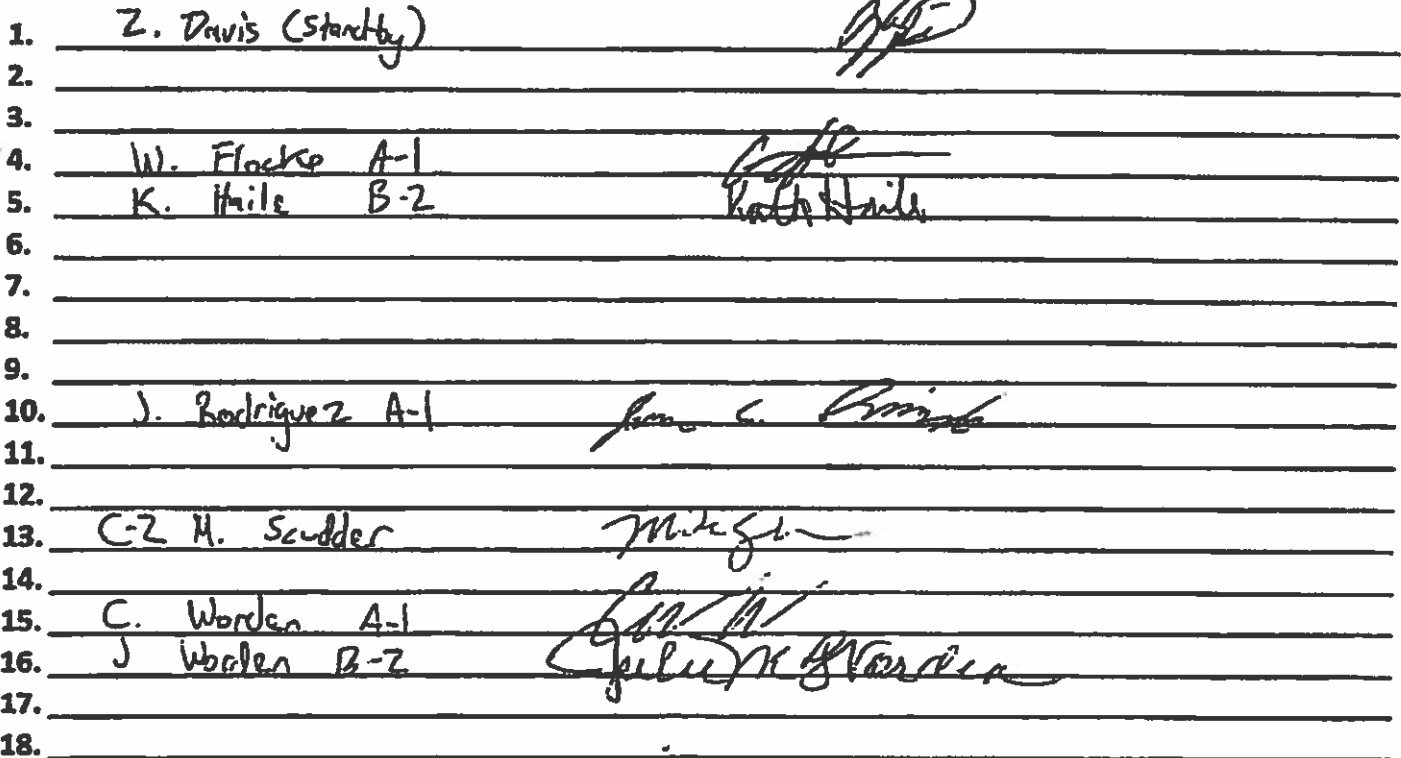 1. Z. Davis (Standby)
2.
3.
4. W. Flocke A-1
5. K. Haile B-2 Keith Haile
6.
7.
8.
9.
10. J. Rodriguez A-1
11.
12.
13. C-2 M. Scudder
14.
15. C. Worden A-1
16. J Worden B-2
17.
18.